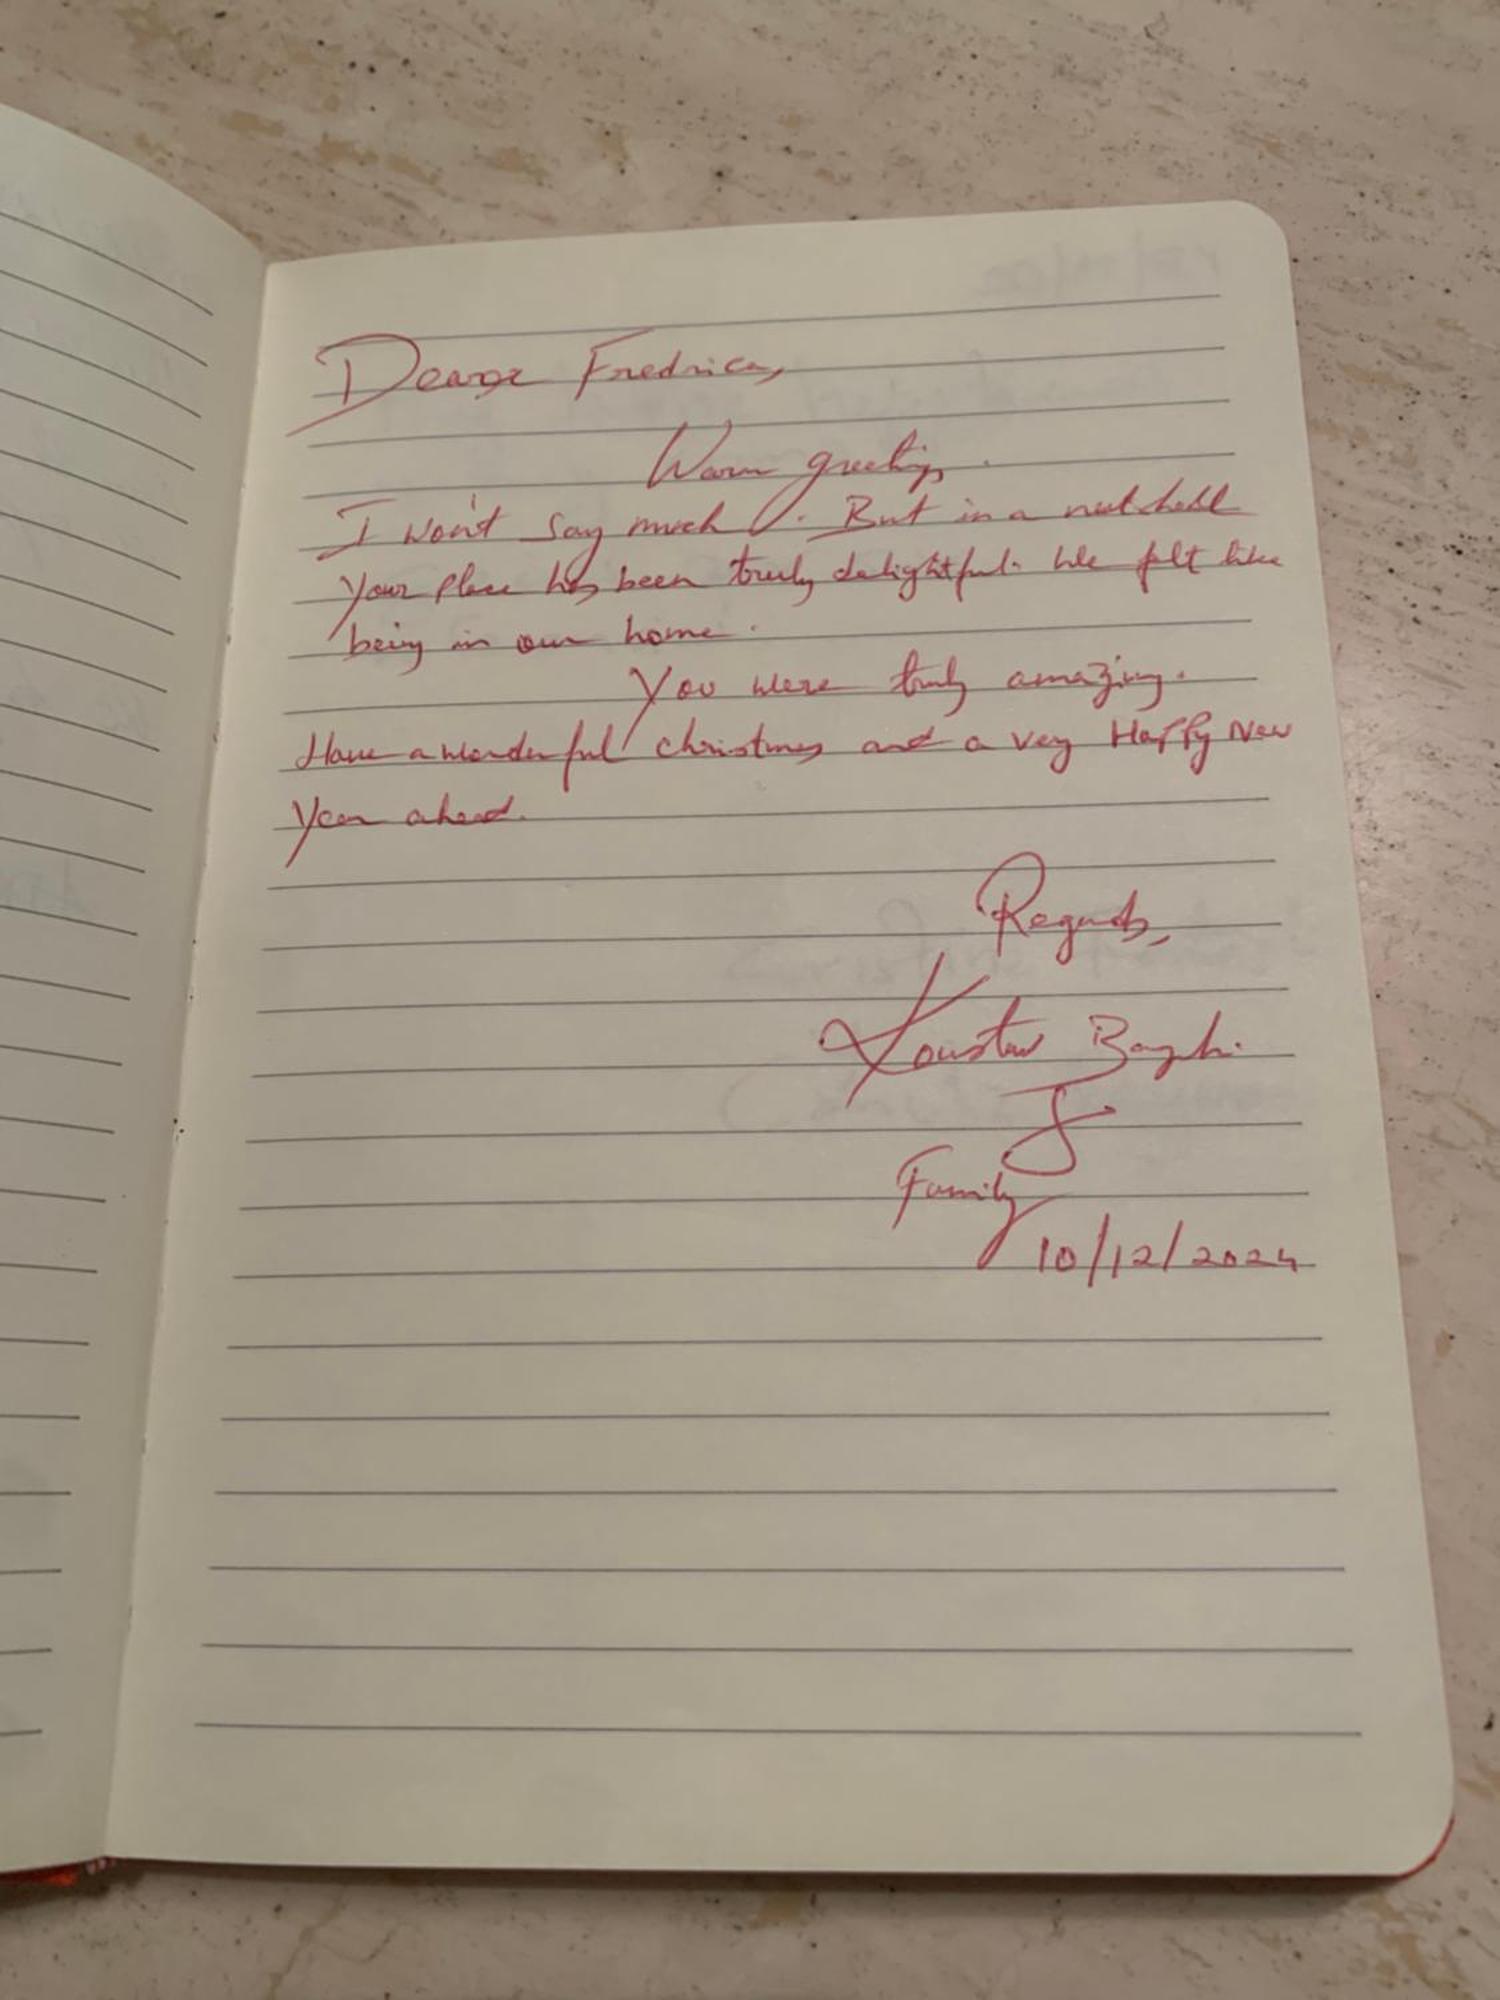 Dear Fredrica,
Warm greetings.
I won't say much. But in a nutshell
Your place has been truly delightful. We felt like
being in our home.
You were truly amazing.
Have a wonderful Christmas and a very Happy New
Year ahead.
Regards,
Koustav Bagchi
&
Family
10/12/2024